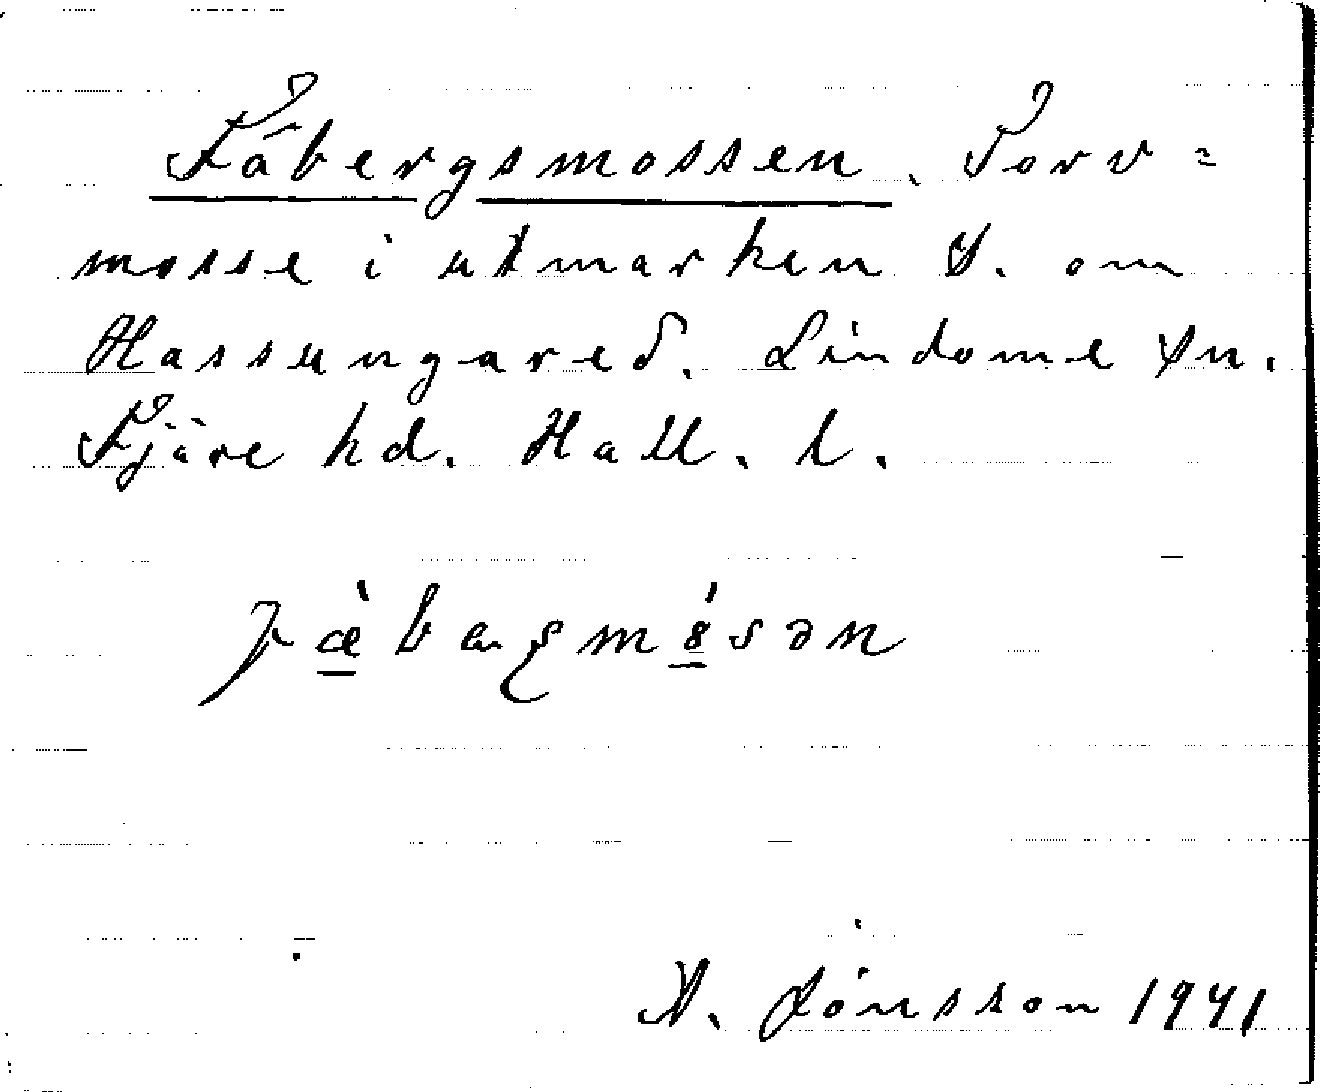 Fåbergsmossen. Torv=
mosse i utmarken S. om
Hassungared. Lindome sn.
Fjäre hd. Hall. l.
A. Jönsson 1941